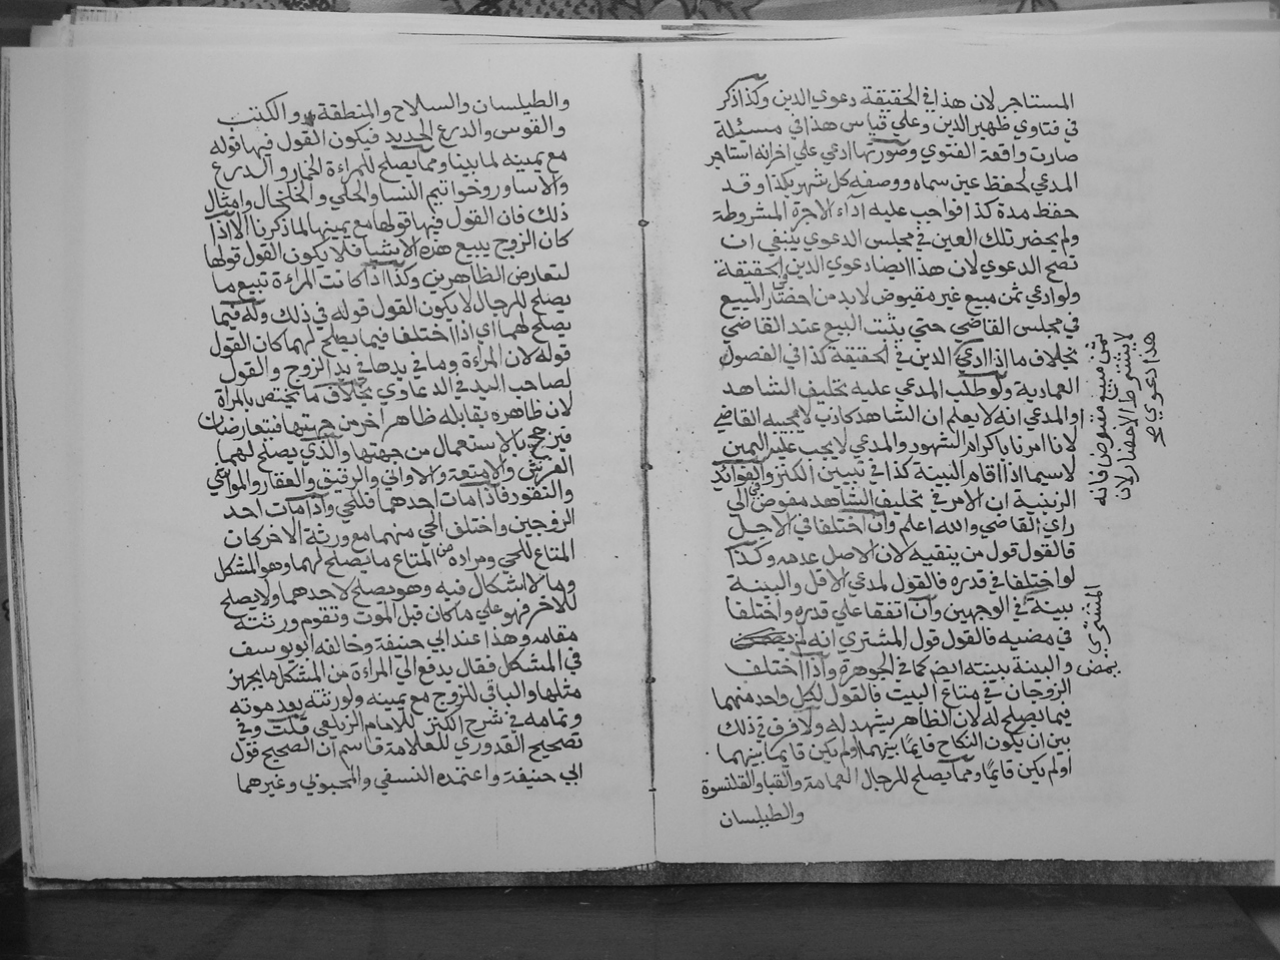 المستاجر لان هذا في الحقيقة دعوي الدين وكذا ذكر
في فتاوي ظهير الدين وعلي قياس هذا في مسئلة
صارت واقعة الفتوي وصورتها ادعي علي اخر انه استاجر
المدعي لحفظ عين سماه ووصفه كل شهر بكذا وقد
حفظ مدة كذا فواجب عليه اداء الاجرة المشروطة
ولم يحضر تلك العين في مجلس الدعوي ينبغي ان
تصح الدعوي لان هذا ايضا دعوي الدين في الحقيقة
ولو ادعي ثمن مبيع غير مقبوض لابد من احضار المبيع
في مجلس القاضي حتي يثبت البيع عند القاضي
بخلاف ما اذا ادعي الدين في الحقيقة كذا في الفصول
العمادية ولو طلب المدعي عليه تحليف الشاهد
او المدعي انه لا يعلم ان الشاهد كاذب لا يجيبه القاضي
لانا امرنا باكرام الشهود والمدعي لا يجب عليه اليمين
لاسيما اذا اقام البينة كذا في تبيين الكنز وفي الفوائد
الزينية ان الامر في تحليف الشاهد مفوض الي
راي القاضي والله اعلم وان اختلفا في الاجل
فالقول قول من ينفيه لان الاصل عدمه وكذا
لو اختلفا في قدره فالقول لمدعي الاقل والبينة
بينة في الوجهين وان اتفقا علي قدره واختلفا
في مضيه فالقول قول المشتري انه لم يمض
والبينة بينته ايضا كما في الجوهرة واذا اختلف
الزوجان في متاع البيت فالقول لكل واحد منهما
فيما يصلح له لان الظاهر يشهد له ولا فرق في ذلك
بين ان يكون النكاح قايما بينهما او لم يكن قايما بينهما
او لم يكن قايما ومما يصلح للرجال العمامة والقبا والقلنسوة
والطيلسان
ثمن مبيع مقبوض فانه
لا يشترط الاحضار لان
هذا دعوي
المشتري
يمض
والطيلسان والسلاح والمنطقة والكتب
والقوس والدرع الحديد فيكون القول فيها قوله
مع يمينه لما بينا ومما يصلح للمراءة الخمار والدرع
والاساور وخواتيم النسا والحلي والخلخال وامثال
ذلك فان القول فيها قولها مع يمينها لما ذكرنا الا اذا
كان الزوج يبيع هذه الاشيا فلا يكون القول قولها
لتعارض الظاهرين وكذا اذا كانت المراءة تبيع ما
يصلح للرجال لا يكون القول قوله في ذلك وله فيما
يصلح لهما اي اذا اختلفا فيما يصلح لهما كان القول
قوله لان المراءة وما في يدها في يد الزوج والقول
لصاحب اليد في الدعاوي بخلاف ما يختص بالمراة
لان ظاهره يقابله ظاهر اخر من جهتها فيتعارضان
فيرجح بالاستعمال من جهتها والذي يصلح لهما
الفرش والامتعة والاواني والرقيق والعقار والمواشي
والنقود فاذا مات احدهما فللحي واذا مات احد
الزوجين واختلف الحي منهما مع ورثة الاخر كان
المتاع للحي ومراده من المتاع ما يصلح لهما وهو المشكل
وما لا اشكال فيه وهو يصلح لاحدهما ولا يصلح
للاخر فهو علي ما كان قبل الموت وتقوم ورثته
مقامه وهذا عند ابي حنيفة وخالفه ابو يوسف
في المشكل فقال يدفع الي المراءة من المشكل ما يجهز
مثلها والباقي للزوج مع يمينه ولورثته بعد موته
وتمامه في شرح الكنز للامام الزيلعي قلت وفي
تصحيح القدوري للعلامة قاسم ان الصحيح قول
ابي حنيفة واعتمده النسفي والمحبوبي وغيرهما